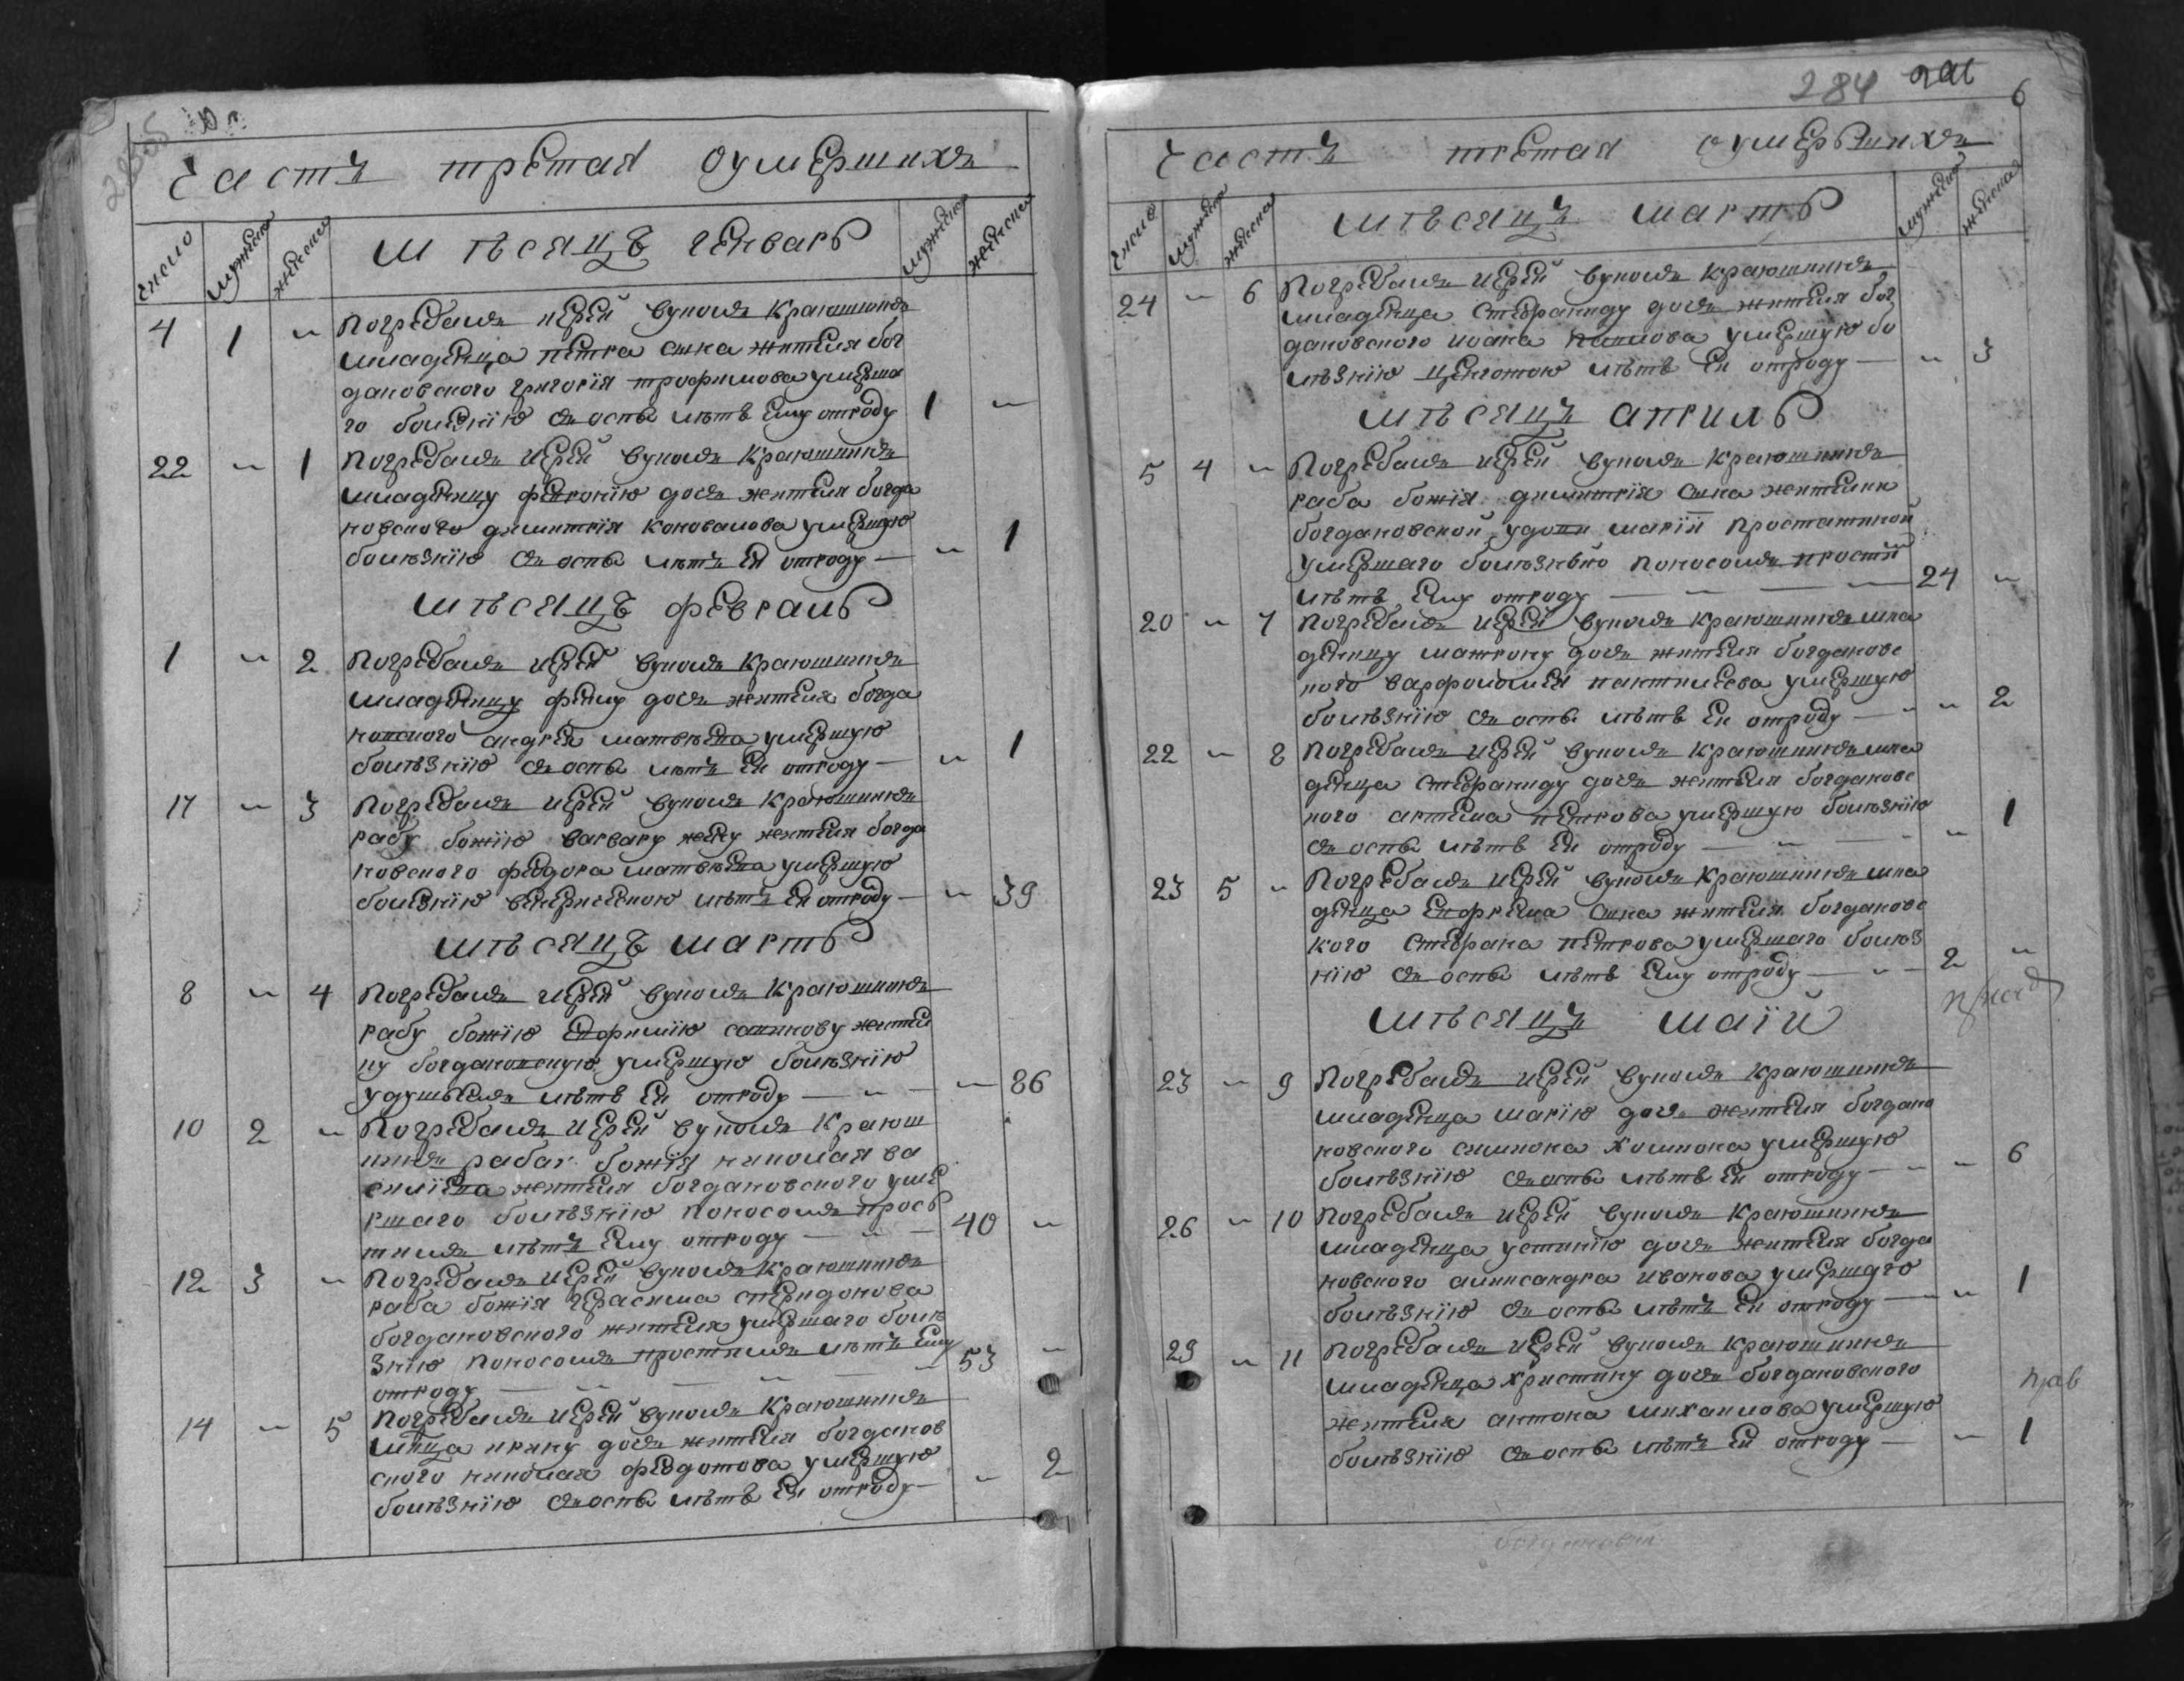 часть третая оумершихъ
число
мужска
женска
мѣсяцъ генварь
мужска
женска
4 1 Погребалъ иерей вуколъ краюшкинъ
младенца петра сына жителя бог
дановского григорїя трофимова умерша
го болезнїю съ оспы лѣтъ ему отроду 1
22 1 Погребалъ иерей вуколъ краюшкинъ
младенцу февронїю дочъ жителя богда
новского димитрїя коновалова умершую
болѣзнїю съ оспы лѣтъ ей отроду 1
мѣсяцъ февраль
1 2 Погребалъ иерей вуколъ краюшкинъ
младенцу дочъ жителя богда
новского андрея матвѣева умершую
болѣзнїю съ оспы лѣтъ ей отроду 1
17 3 Погребалъ иерей вуколъ краюшкинъ
рабу божїю варвару жену жителя богда
новского федора матвѣева умершую
болезнїю лѣтъ ей отроду 39
мѣсяцъ мартъ
8 4 Погребалъ иерей вуколъ краюшкинъ
рабу божїю ефимїю жител
ку богдановскую умершую болѣзнїю
удушьемъ лѣтъ ей отроду 86
10 2 Погребалъ иерей вуколъ краюш
кинъ раба божїя николая ва
силїева жителя богдановского уме
ршаго болѣзнїю поносомъ прось
тимъ лѣтъ ему отроду 40
12 3 Погребалъ иерей вуколъ краюшкинъ
раба божїя герасима спиридонова
богдановского жителя умершаго болѣ
знїю поносомъ простимъ лѣтъ ему
отроду 53
14 5 Погребалъ иерей вуколъ краюшкинъ
мл҃нца ирину дочъ жителя богданов
ского николая федотова умершую
болѣзнїю съ оспы лѣтъ ей отроду 2
284
6
часть третая оумерьшихъ
число
мужска
женска
мѣсяцъ мартъ
мужска
женска
24 6 Погребалъ иерей вуколъ краюшкинъ
младенца стефаниду дочъ жителя бог
дановского иоана умершую бо
лѣзнїю лѣтъ ей отроду 3
мѣсяцъ априль
5 4 Погребалъ иерей вуколъ краюшкинъ
раба божїя димитрїя сына жителки
богдановской удови марїи
умершаго болѣзнью поносомъ простїй
лѣтъ ему отроду 24
20 7 Погребалъ иерей вуколъ краюшкинъ мла
денцу матрону дочъ жителя богдановс
кого варфоломея умершую
болѣзнїю съ оспы лѣтъ ей отроду 2
22 8 Погребалъ иерей вуколъ краюшкинъ мла
денца стефаниду дочъ жителя богдановс
кого артема петрова умершую болѣзнїю
съ оспы лѣтъ ей отроду 1
23 5 Погребалъ иерей вуколъ краюшкинъ мла
денца ефрема сына жителя богдановс
кого стефана петрова умершаго болѣз
нїю съ оспы лѣтъ ему отроду 2
мѣсяцъ маїй
23 9 Погребалъ иерей вуколъ краюшкинъ
младенца марїю дочъ жителя богдано
новского симиона умершую
болѣзнїю съ оспы лѣтъ ей отроду 6
26 10 Погребалъ иерей вуколъ краюшкинъ
младенца устинїю дочъ жителя богда
новского аликсандра иванова умершую
болѣзнїю съ оспы лѣтъ ей отроду 1
29 11 Погребалъ иерей вуколъ краюшкинъ
младенца христину дочъ богдановского
жителя антона михаилова умершую
болѣзнїю съ оспы лѣтъ ей отроду 1